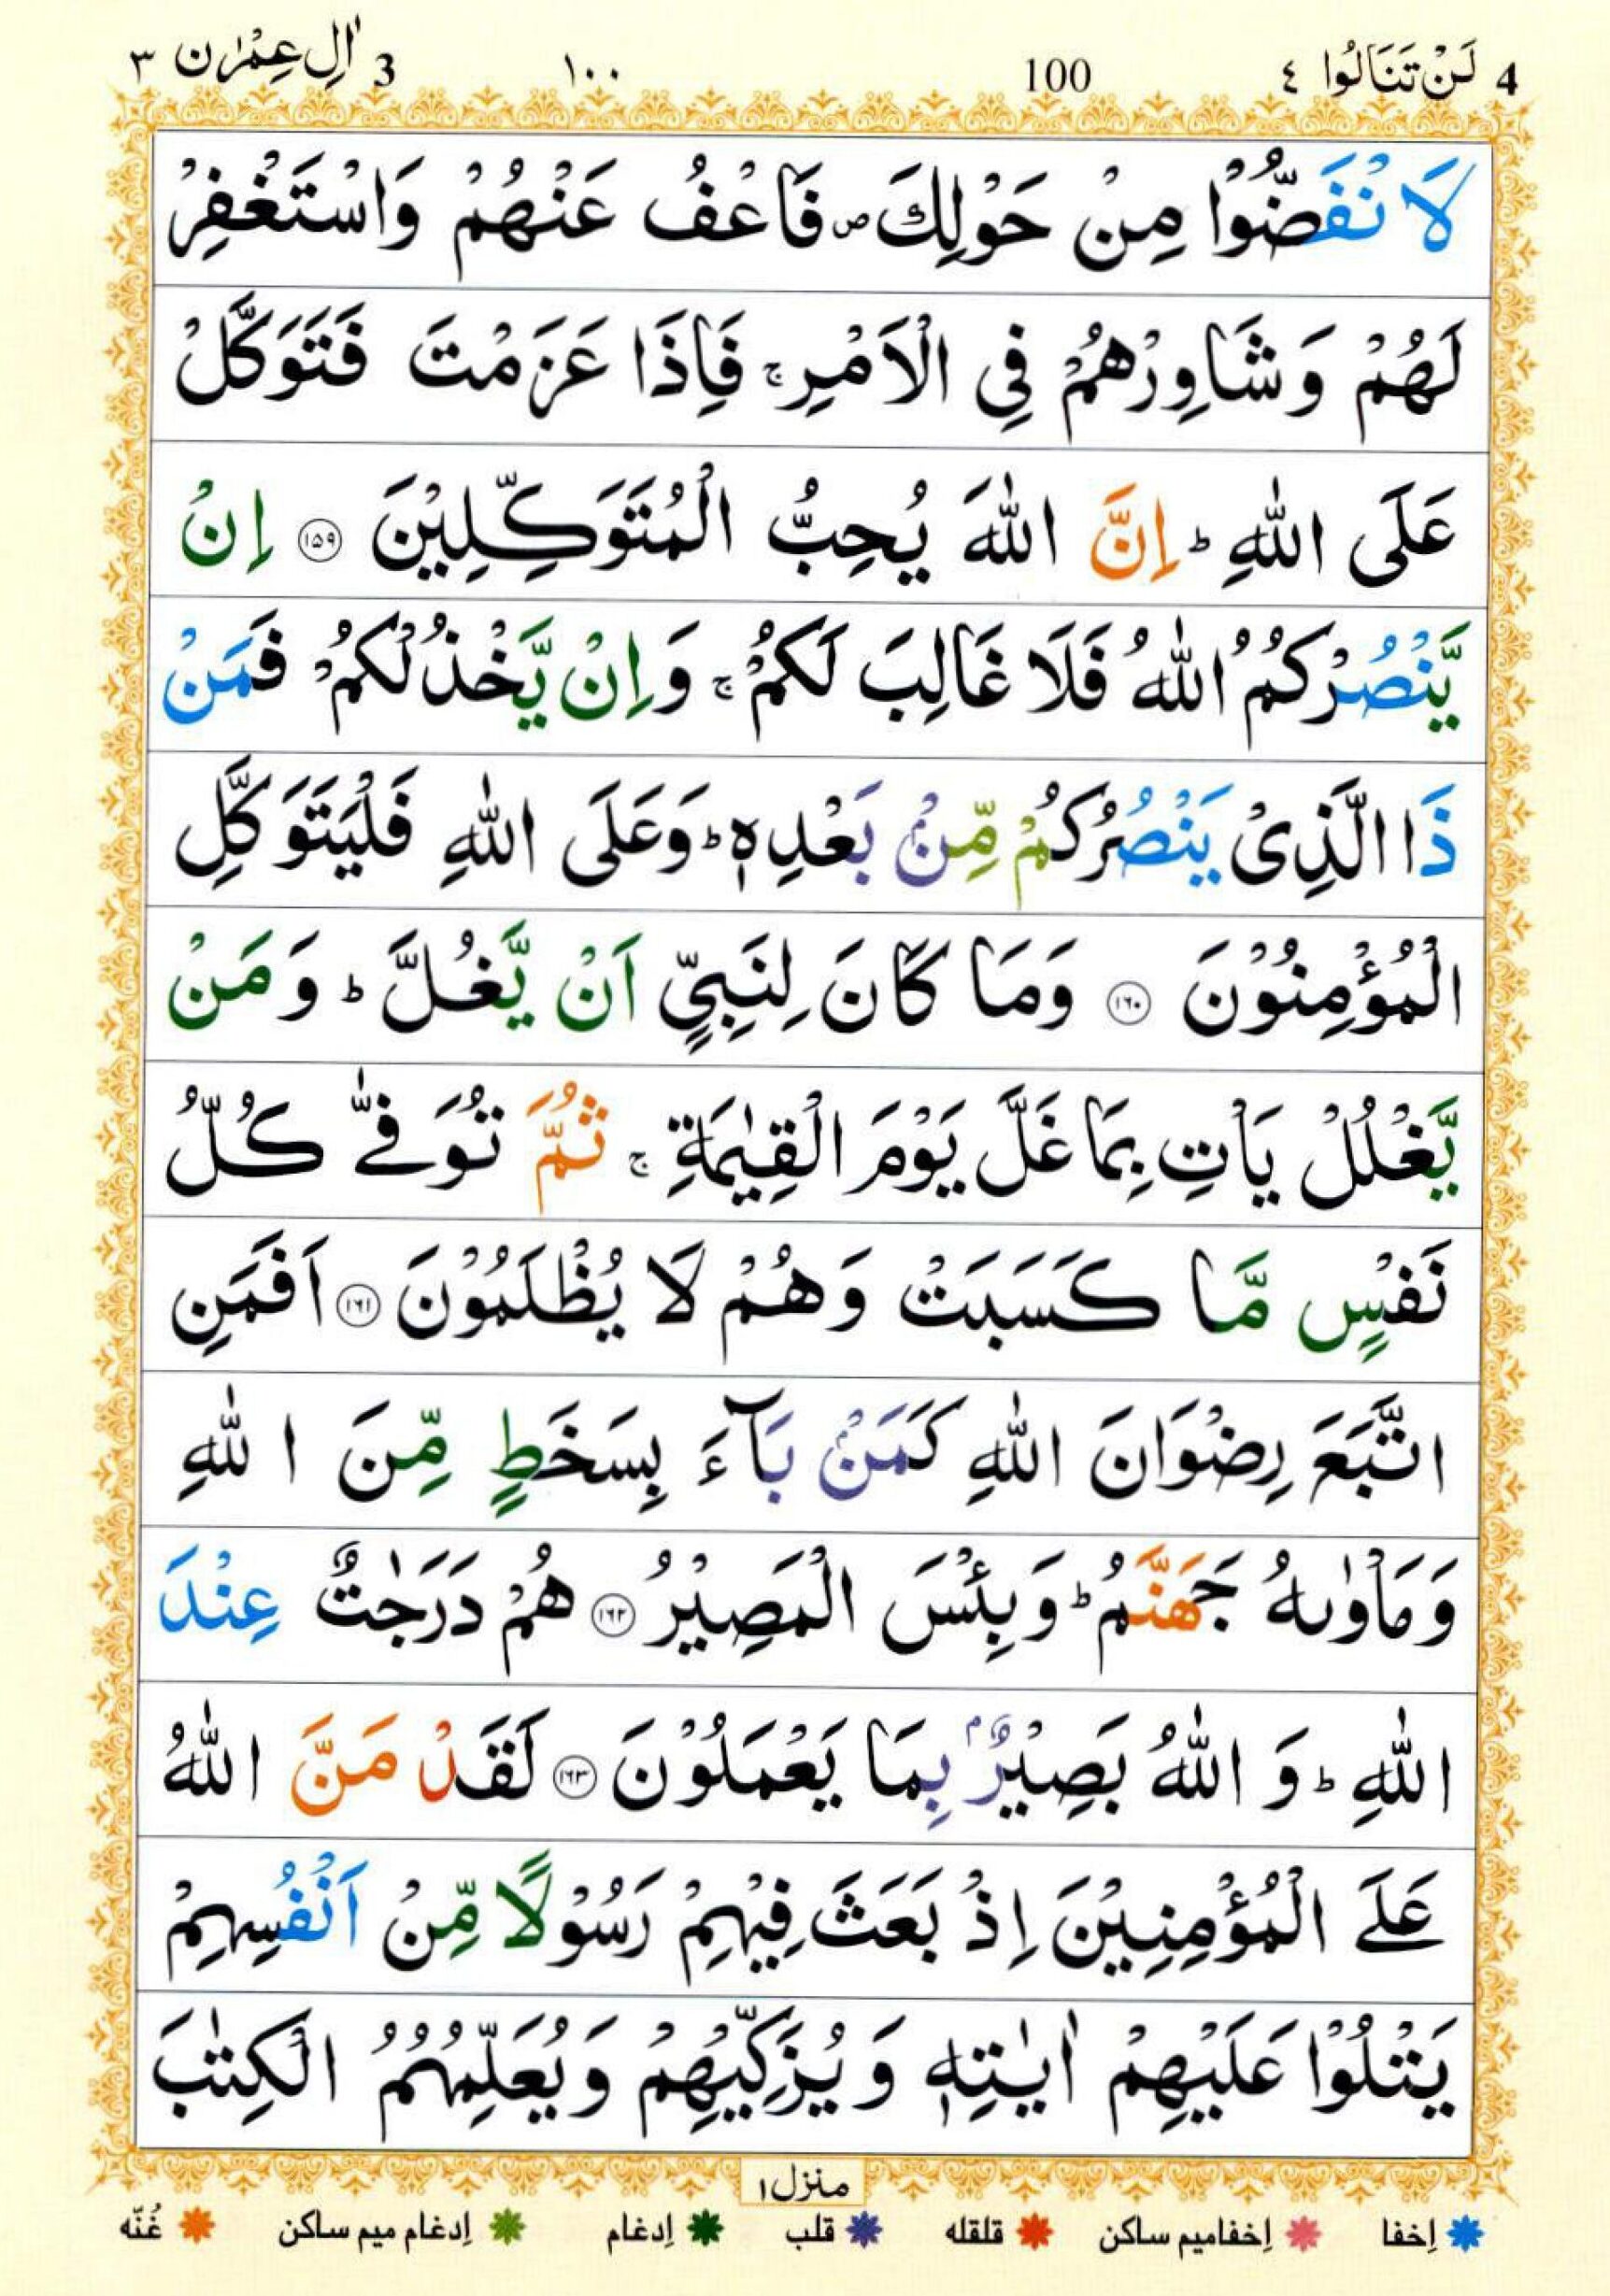 4 لَنْ تَنَالُوا ٤ 100 ١٠٠ 3 اٰلِ عِمْرٰن ٣
لَا نْفَضُّوْا مِنْ حَوْلِكَ ص فَاعْفُ عَنْهُمْ وَاسْتَغْفِرْ
لَهُمْ وَشَاوِرْهُمْ فِي الْاَمْرِ ج فَاِذَا عَزَمْتَ فَتَوَكَّلْ
عَلَى اللّٰهِ ط اِنَّ اللّٰهَ يُحِبُّ الْمُتَوَكِّلِيْنَ ١٥٩ اِنْ
يَّنْصُرْكُمُ اللّٰهُ فَلَا غَالِبَ لَكُمْ ج وَاِنْ يَّخْذُلْكُمْ فَمَنْ
ذَا الَّذِىْ يَنْصُرُكُمْ مِّنْۢ بَعْدِهٖ ط وَعَلَى اللّٰهِ فَلْيَتَوَكَّلِ
الْمُؤْمِنُوْنَ ١٦٠ وَمَا كَانَ لِنَبِيٍّ اَنْ يَّغُلَّ ط وَمَنْ
يَّغْلُلْ يَاْتِ بِمَا غَلَّ يَوْمَ الْقِيٰمَةِ ج ثُمَّ تُوَفّٰى كُلُّ
نَفْسٍ مَّا كَسَبَتْ وَهُمْ لَا يُظْلَمُوْنَ ١٦١ اَفَمَنِ
اتَّبَعَ رِضْوَانَ اللّٰهِ كَمَنْۢ بَآءَ بِسَخَطٍ مِّنَ اللّٰهِ
وَمَاْوٰىهُ جَهَنَّمُ ط وَبِئْسَ الْمَصِيْرُ ١٦٢ هُمْ دَرَجٰتٌ عِنْدَ
اللّٰهِ ط وَاللّٰهُ بَصِيْرٌۢ بِمَا يَعْمَلُوْنَ ١٦٣ لَقَدْ مَنَّ اللّٰهُ
عَلَى الْمُؤْمِنِيْنَ اِذْ بَعَثَ فِيْهِمْ رَسُوْلًا مِّنْ اَنْفُسِهِمْ
يَتْلُوْا عَلَيْهِمْ اٰيٰتِهٖ وَيُزَكِّيْهِمْ وَيُعَلِّمُهُمُ الْكِتٰبَ
منزل ١
اِخفا اِخفامیم ساکن قلقله قلب اِدغام اِدغام میم ساکن غُنّه